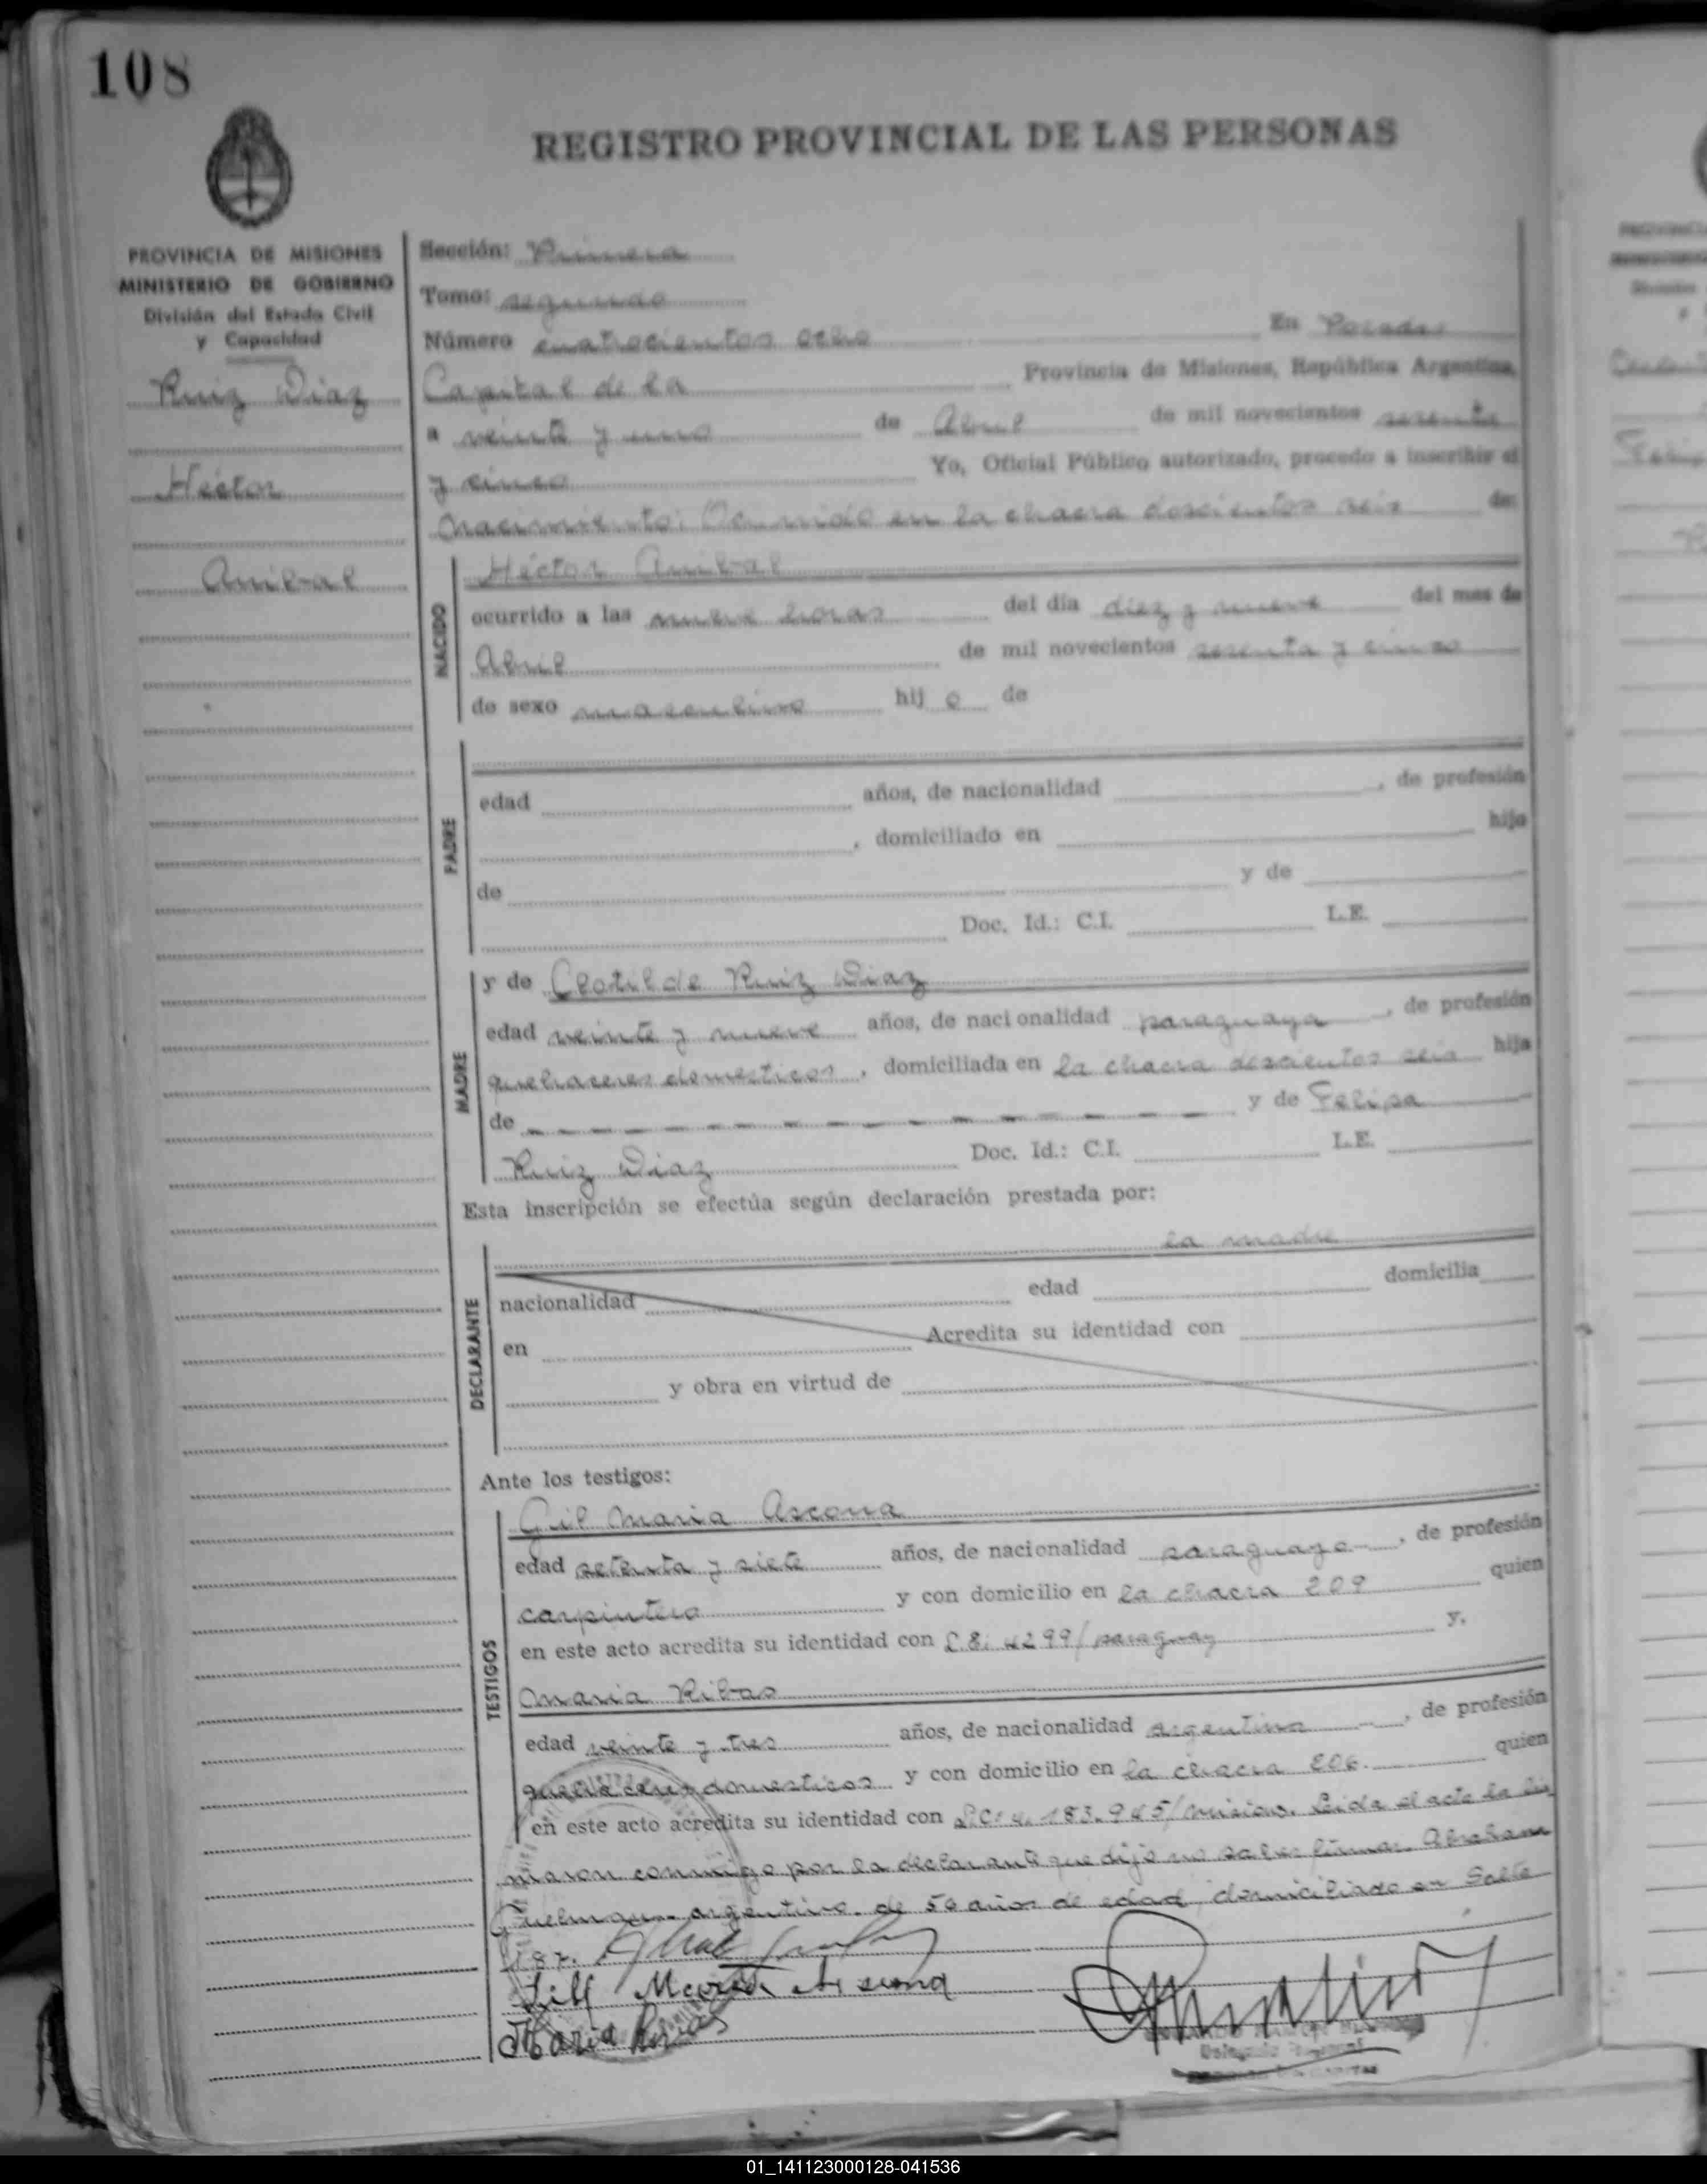 108
REGISTRO PROVINCIAL DE LAS PERSONAS
PROVINCIA DE MISIONES
MINISTERIO DE GOBIERNO
División del Estado Civil
y Capacidad
Ruiz Diaz
Héctor
Anibal
Sección: Primera
Tomo: segundo
Número cuatrocientos ocho En Posadas
Capital de la Provincia de Misiones, República Argentina,
a veinte y uno de Abril de mil novecientos sesenta
y cinco Yo, Oficial Público autorizado, procedo a inscribir el
nacimiento: Ocurrido en la chacra doscientos seis de:
NACIDO
Héctor Anibal
ocurrido a las nueve horas del día diez y nueve del mes de
Abril de mil novecientos sesenta y cinco
de sexo masculino hij o de
PADRE
edad años, de nacionalidad , de profesión
, domiciliado en hijo
de y de
Doc. Id.: C.I. L.E.
MADRE
y de Clotilde Ruiz Diaz
edad veinte y nueve años, de nacionalidad paraguaya , de profesión
quehaceres domesticos , domiciliada en la chacra doscientos seis hija
de - - - - - - - - - - - - y de Felipa
Ruiz Diaz Doc. Id.: C.I. L.E.
Esta inscripción se efectúa según declaración prestada por:
la madre
DECLARANTE
nacionalidad edad domicilia
en Acredita su identidad con
y obra en virtud de
Ante los testigos:
TESTIGOS
Gil Maria Ascona
edad setenta y siete años, de nacionalidad paraguayo , de profesión
carpintero y con domicilio en la chacra 209 quien
en este acto acredita su identidad con 4299/paraguay y,
Maria Ribas
edad veinte y tres años, de nacionalidad argentina , de profesión
quehaceres domesticos y con domicilio en la chacra 206. quien
en este acto acredita su identidad con 4.183.945/Misiones. Leida el acta la fir
maron conmigo por la declarante que dijo no saber firmar Abraham
Guelman argentino de 56 años de edad domiciliado en Salta
187.
Gill Maria Ascona
Maria Rivas
01_141123000128-041536